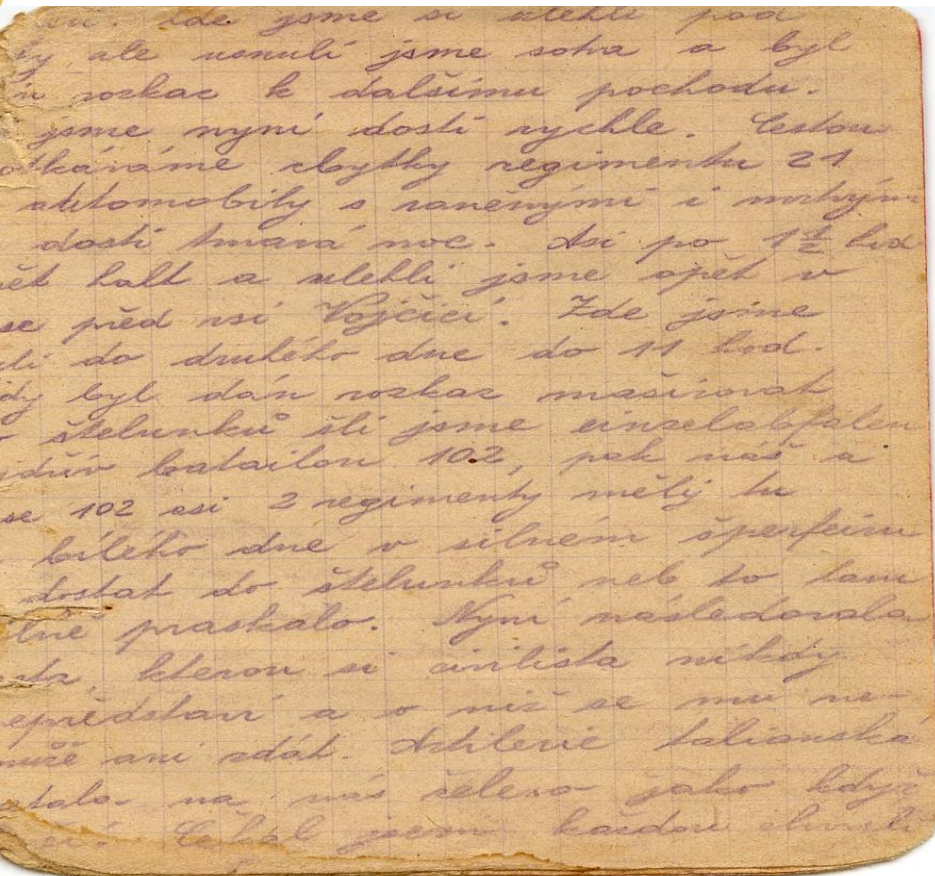 Zde jsme si ulehli pod
ale usnuli jsme soha a byl
rozkaz k dalšímu pochodu.
jsme nyní dosti rychle. Cestou
tkáváme zbytky regimentu 21
automobily s raněnými i mrtvým
dosti tmavá noc. Asi po 1½ hod
ět halt a ulehli jsme opět v
se před vsí Vojčicí. Zde jsme
li do druhého dne do 11 hod.
dy byl dán rozkaz mašírovat
štelunků šli jsme einzelabfalen
jdřív batailon 102, pak náš a
se 102 asi 2 regimenty měly tu
bílého dne v silném šperfeiru
dostat do štelunků neb to tam
lně praskalo. Nyní následovala
kterou si civilista nikdy
epředstaví a o níž se mu ne-
může ani zdát. Artilerie talianská
tala na nás železo jako když
Čekal jsem každou chvíli